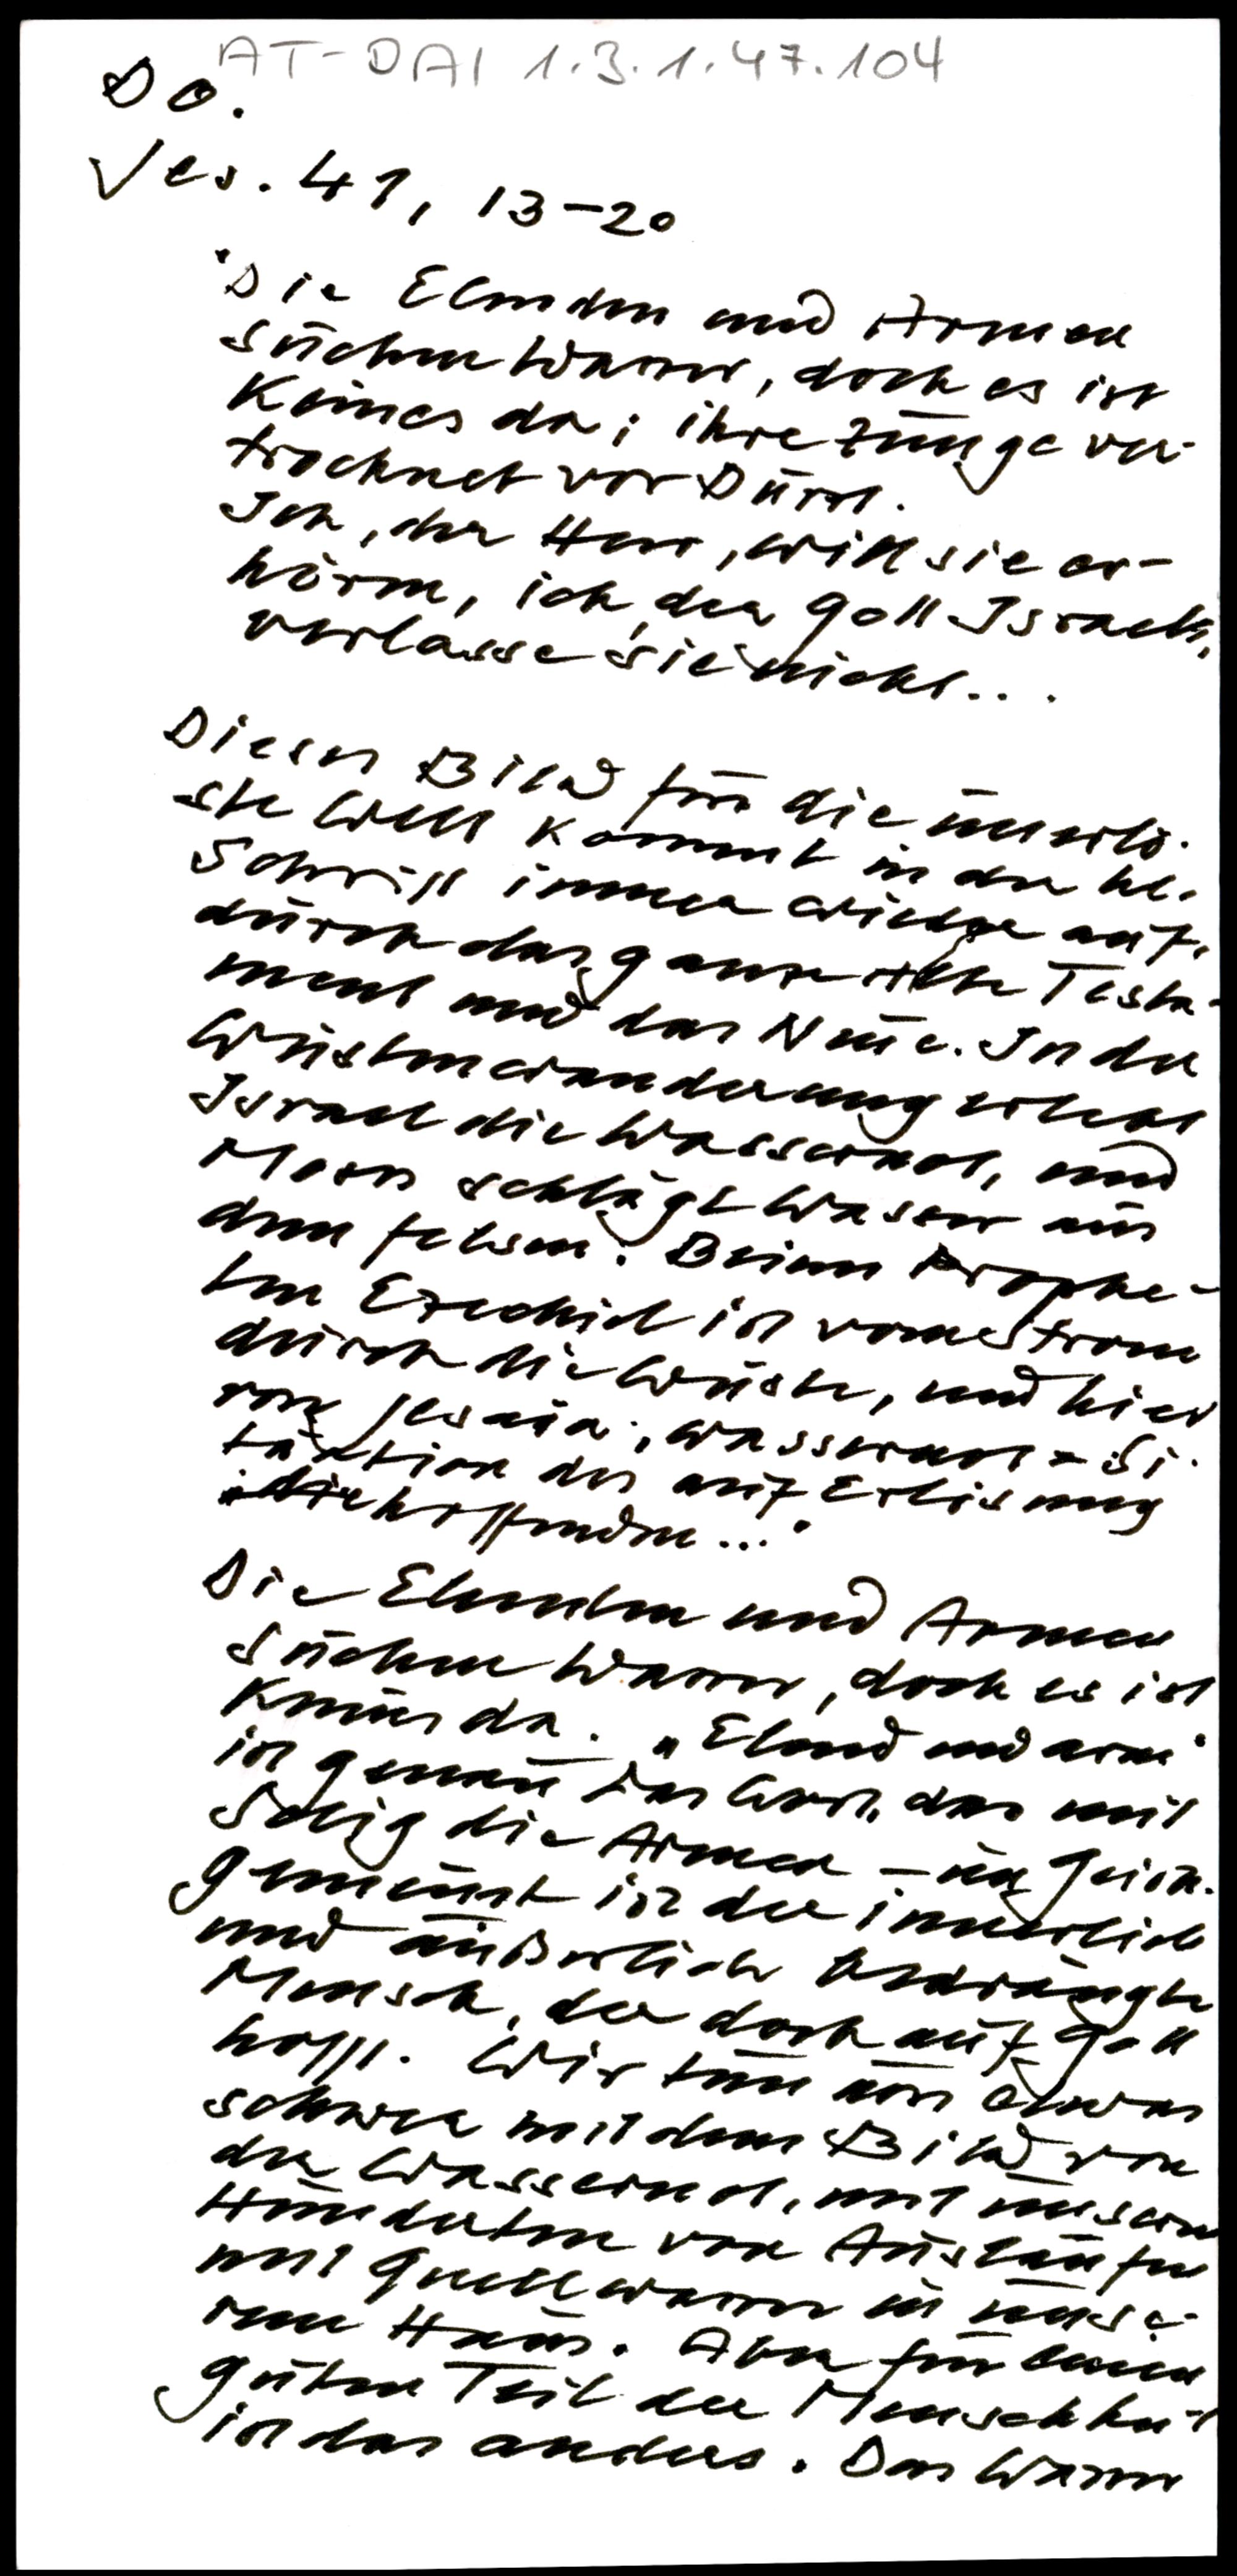 AT-DAI 1.3.1.47.104
Do.
Jes. 41, 13-20
"Die Elenden und Armen
suchen Wasser, doch es ist
keines da; ihre Zunge ver-
trocknet vor Durst.
Ich, der Herr, will sie er-
hören, ich, der Gott Israels,
verlasse sie nicht...
Dieses Bild für die unerlö-
ste Welt kommt in der hl.
Schrift immer wieder auf,
durch das ganze Alte Testa-
ment und das Neue. In der
Wüstenwanderung erlebt
Israel die Wassernot, und
Moses schlägt Wasser aus
dem Felsen. Beim Prophe-
ten Ezechiel ist vom Strom
durch die Wüste, und hier
von Jesaia: Wassernot = Si-
tuation der auf Erlösung
hoffenden..."
Die Elenden und Armen
suchen Wasser, doch es ist
keines da. "Elend und arm"
ist genau das Wort, das mit
Selig die Armen - im Geist.
gemeint ist der innerlich
und äußerlich bedrängte
Mensch, der doch auf Gott
hofft. Wir tun uns etwas
schwer mit dem Bild von
der Wassernot, mit unsern
Hunderten von Ausläufen
mit Quellwasser in unse-
rem Haus. Aber für einen
guten Teil der Menschheit
ist das anders. Das Wasser